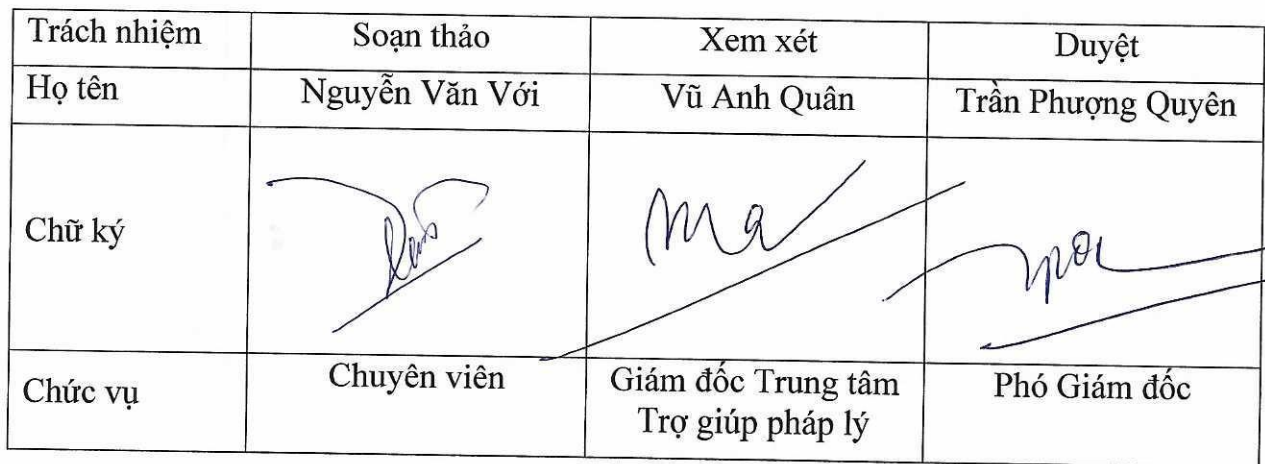 Trách nhiệm Soạn thảo Xem xét Duyệt
Họ tên Nguyễn Văn Với Vũ Anh Quân Trần Phượng Quyên
Chữ ký
Chức vụ Chuyên viên Giám đốc Trung tâm Phó Giám đốc
Trợ giúp pháp lý